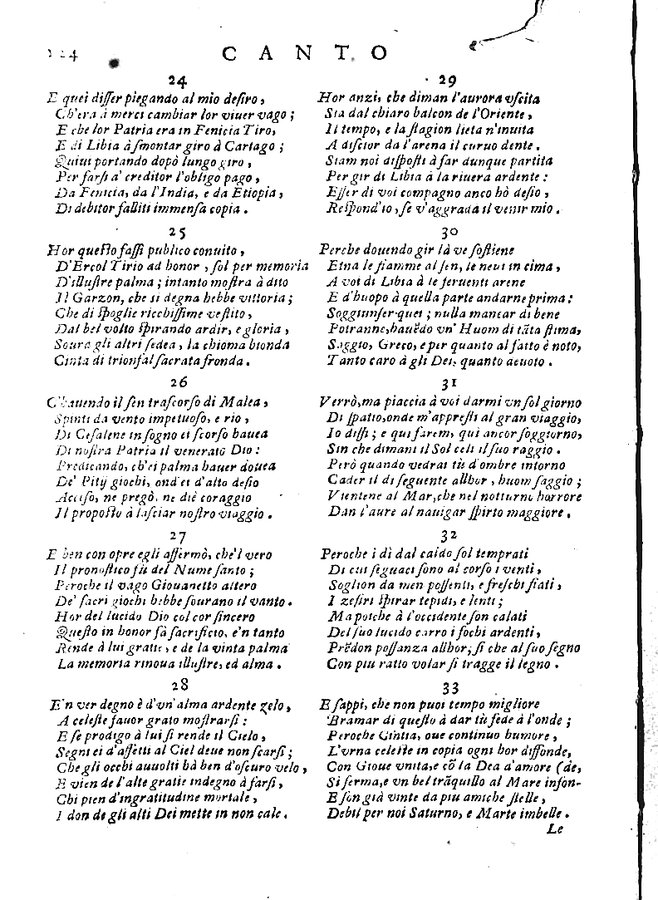 CANTO
24
E quei disser piegando al mio desiro,
Ch'era à merci cambiar lor viuer vago;
E che lor Patria era in Fenicia Tiro,
E di Libia à smontar giro à Cartago;
Quiui portando dopò lungo giro,
Per farsi a' creditor l'obligo pago,
Da Fenicia, da l'India, e da Etiopia,
Di debitor falliti immensa copia.
25
Hor questo fassi publico conuito,
D'Ercol Tirio ad honor, sol per memoria
D'illustre palma; intanto mostra à dito
Il Garzon, che si degna hebbe vittoria;
Che di spoglie ricchissime vestito,
Dal bel volto spirando ardir, e gloria,
Soura gli altri sedea, la chioma bionda
Cinta di trionfal sacrata fronda.
26
C'hauendo il sen trascorso di Malea,
Spinti da vento impetuoso, e rio,
Di Cefalene in sogno ei scorso hauea
Di nostra Patria il venerato Dio:
Predicando, ch'ei palma hauer douea
De' Pitij giochi, ond'ei d'alto desio
Acceso, ne pregò, ne diè coraggio
Il proposto à lasciar nostro viaggio.
27
E ben con opre egli affermò, che'l vero
Il pronostico fù del Nume santo;
Peroche il vago Giouanetto altero
De' sacri giochi hebbe sourano il vanto.
Hor del lucido Dio col cor sincero
Questo in honor fà sacrificio, e'n tanto
Rende à lui gratie, e de la vinta palma
La memoria rinoua illustre, ed alma.
28
E'n ver degno è d'vn'alma ardente zelo,
A celeste fauor grato mostrarsi:
E se prodigo à lui si rende il Cielo,
Segni ei d'affetti al Ciel deue non scarsi;
Che gli occhi auuolti hà ben d'oscuro velo,
E vien de l'alte gratie indegno à farsi,
Chi pien d'ingratitudine mortale,
I don de gli alti Dei mette in non cale.
29
Hor anzi, che diman l'aurora vscita
Sia dal chiaro balcon de l'Oriente,
Il tempo, e la stagion lieta n'inuita
A discior da l'arena il curuo dente.
Siam noi disposti à far dunque partita
Per gir di Libia à la riuera ardente:
Esser di voi compagno anco hò desio,
Respond'io, se v'aggrada il venir mio.
30
Perche douendo gir là ve sostiene
Etna le fiamme al sen, le neui in cima,
A voi di Libia à le feruenti arene
E d'huopo à quella parte andarne prima:
Soggiunser quei; nulla mancar di bene
Potranne, hauẽdo vn' Huom di tãta stima,
Saggio, Greco, e per quanto al fatto è noto,
Tanto caro à gli Dei, quanto deuoto.
31
Verrò, ma piaccia à voi darmi vn sol giorno
Di spatio, onde m'appresti al gran viaggio,
Io dissi; e qui farem, qui ancor soggiorno,
Sin che dimani il Sol celi il suo raggio.
Però quando vedrai tù d'ombre intorno
Cader il di seguente allhor, huom saggio;
Vientene al Mar, che nel notturno horrore
Dan l'aure al nauigar spirto maggiore.
32
Peroche i dì dal caldo sol temprati
Di cui seguaci sono al corso i venti,
Soglion da men possenti, e freschi fiati,
I zefiri spirar tepidi, e lenti;
Ma poiche à l'occidente son calati
Del suo lucido carro i fochi ardenti,
Prẽdon possanza allhor; sì che al suo segno
Con piu ratto volar si tragge il legno.
33
E sappi, che non puoi tempo migliore
Bramar di questo à dar tù fede à l'onde;
Peroche Cintia, oue continuo humore,
L'vrna celeste in copia ogni hor diffonde,
Con Gioue vnita, e cõ la Dea d'amore (de,
Si ferma, e vn bel trãquillo al Mare infon-
E son già vinte da piu amiche stelle,
Debil per noi Saturno, e Marte imbelle.
Le